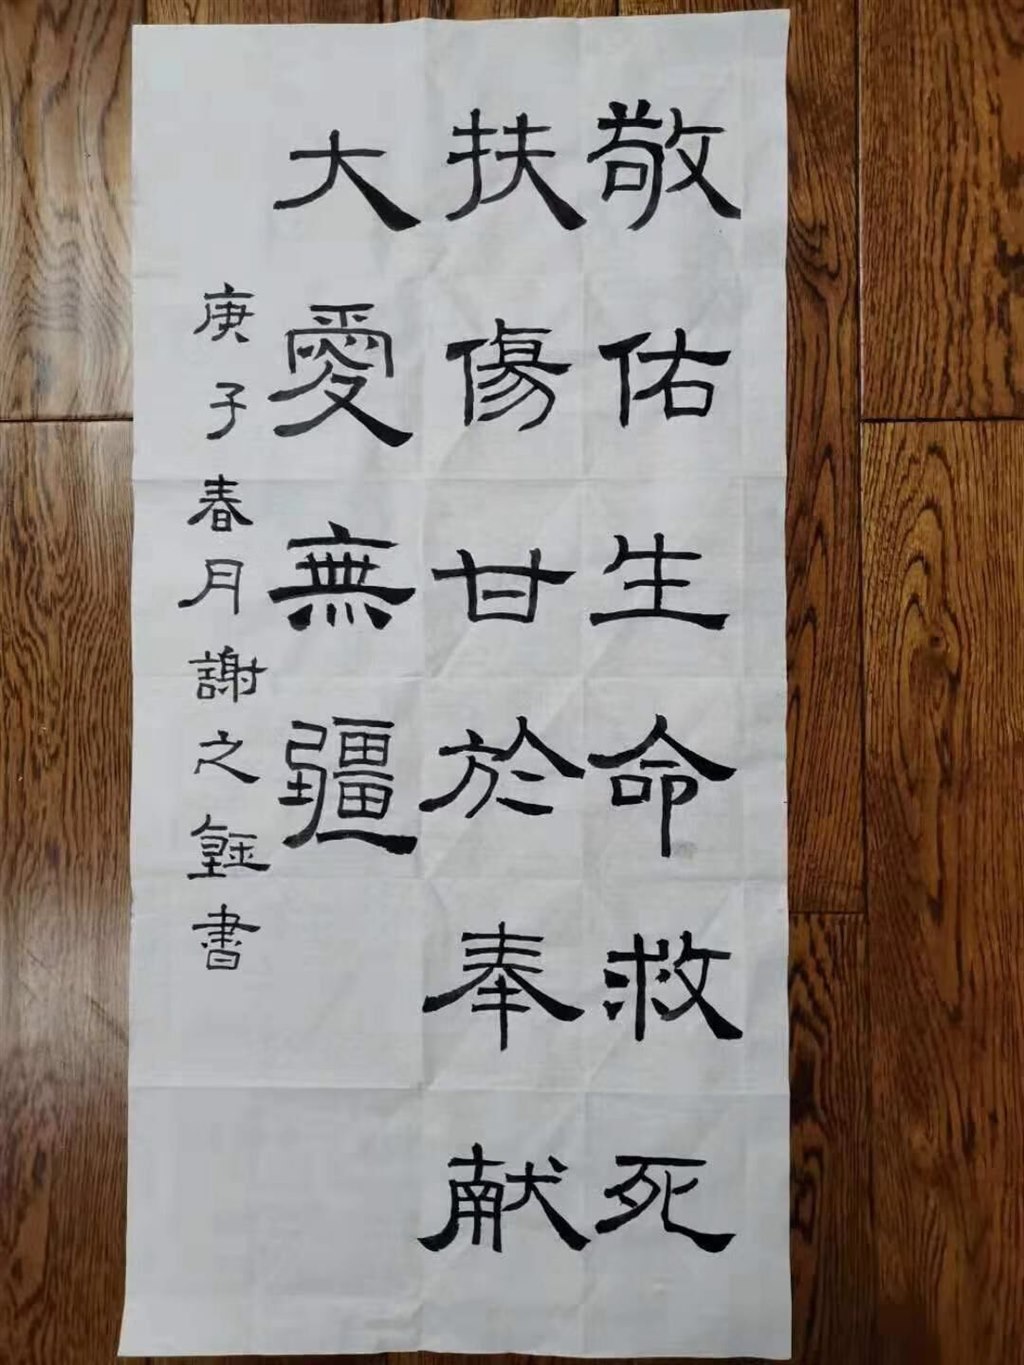 敬佑生命救死
扶傷甘於奉献
大愛無疆
庚子春月謝之鈺書